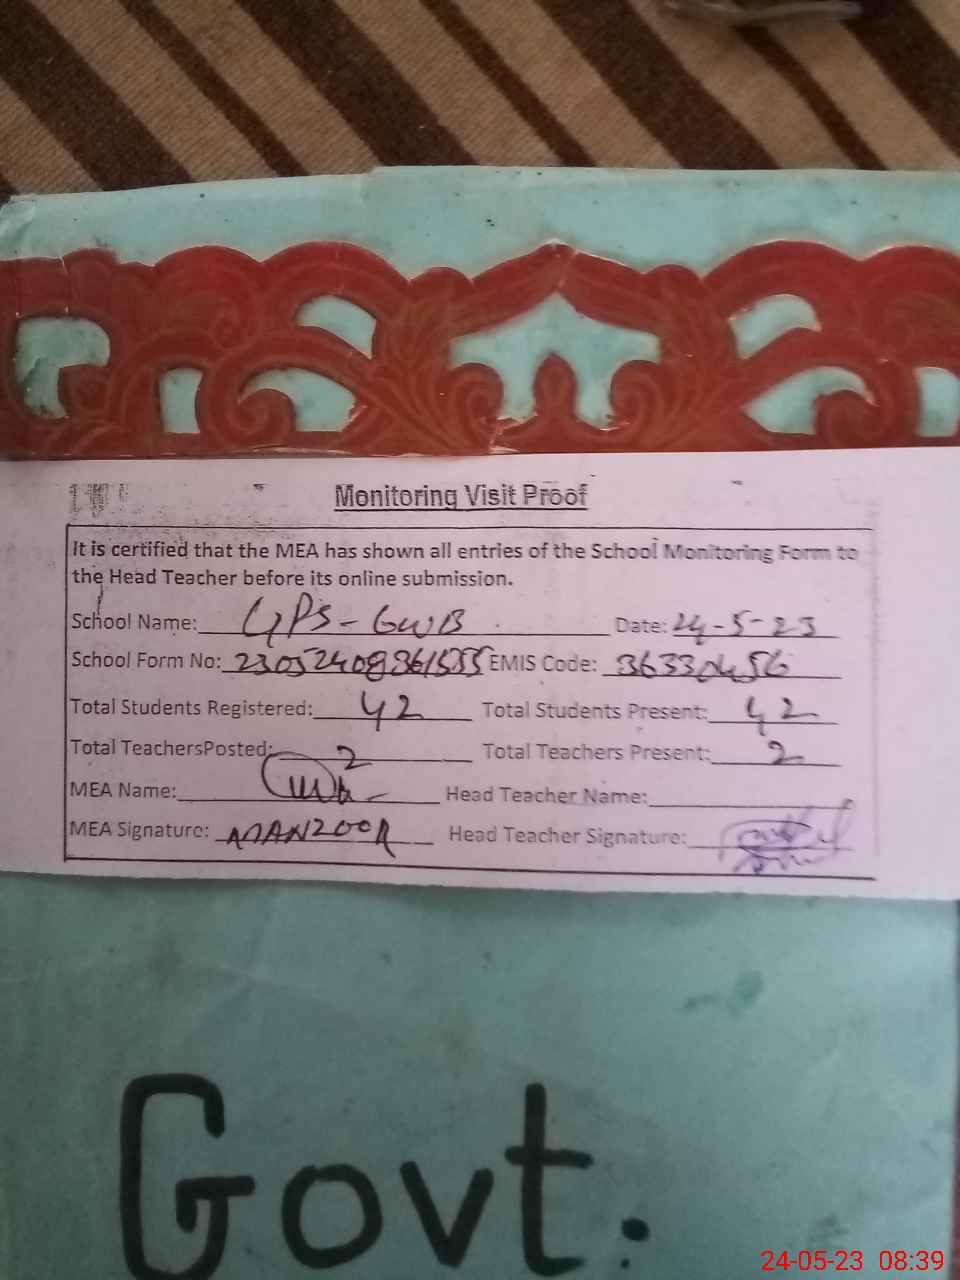 Monitoring Visit Proof
It is certified that the MEA has shown all entries of the School Monitoring Form to
the Head Teacher before its online submission.
School Name: GPS - GWB Date: 24-5-23
School Form No: EMIS Code: 36330456
Total Students Registered: 42 Total Students Present: 42
Total TeachersPosted: 2 Total Teachers Present: 2
MEA Name: Head Teacher Name:
MEA Signature: MANZOOR Head Teacher Signature:
Govt.
24-05-23 08:39